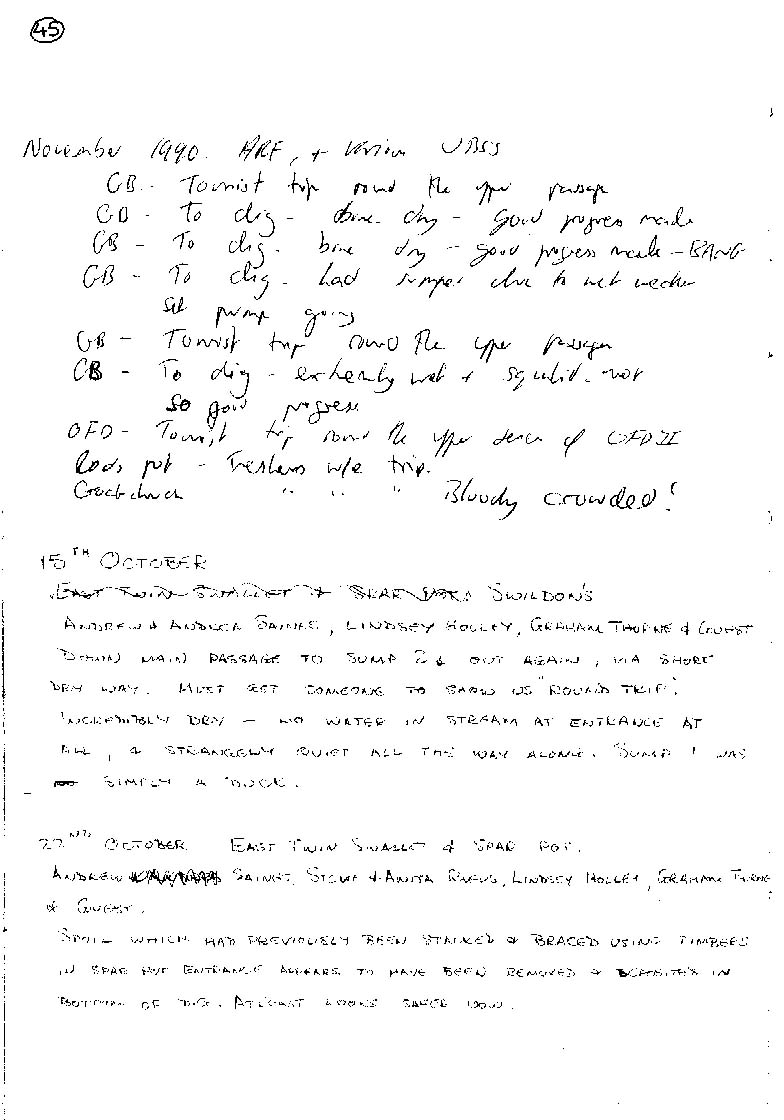 45
November 1990. ARF, + various UBSS
GB - Tourist trip round the upper passage
GB - To dig - bone dry - good progress made
GB - To dig - bone dry - good progress made - BANG
GB - To dig - had sumped due to wet weather
Set pump going
GB - Tourist trip round the upper passages
GB - To dig - extremely wet + squalid - not
so good progress
OFD - Tourist trip round the upper series of OFD II
Rods pot - Freshers w/e trip.
Goatchurch " " " Bloody crowded!
15TH OCTOBER
EAST TWIN SWALLET & SPAR SWILDON'S
ANDREW & ANDREA SAINES, LINDSEY HOLLEY, GRAHAM THORNE & GUEST
DOWN MAIN PASSAGE TO SUMP 2 & OUT AGAIN, VIA SHORT
DRY WAY. MUST GET SOMEONE TO SHOW US "ROUND TRIP".
INCREDIBLY DRY - NO WATER IN STREAM AT ENTRANCE AT
ALL, & STRANGELY QUIET ALL THE WAY ALONG. SUMP 1 WAS
SIMPLY A 'DUCK'.
22ND OCTOBER EAST TWIN SWALLET & SPAR POT.
ANDREW SAINES, STEVE & ANITA, LINDSEY HOLLEY, GRAHAM THORNE
& GUEST.
SPOIL WHICH HAD PREVIOUSLY BEEN STACKED & BRACED USING TIMBERS
IN SPAR POT ENTRANCE APPEARS TO HAVE BEEN REMOVED & IN
BOTTOM OF DIG. AT LEAST LOOKS SAFER NOW.